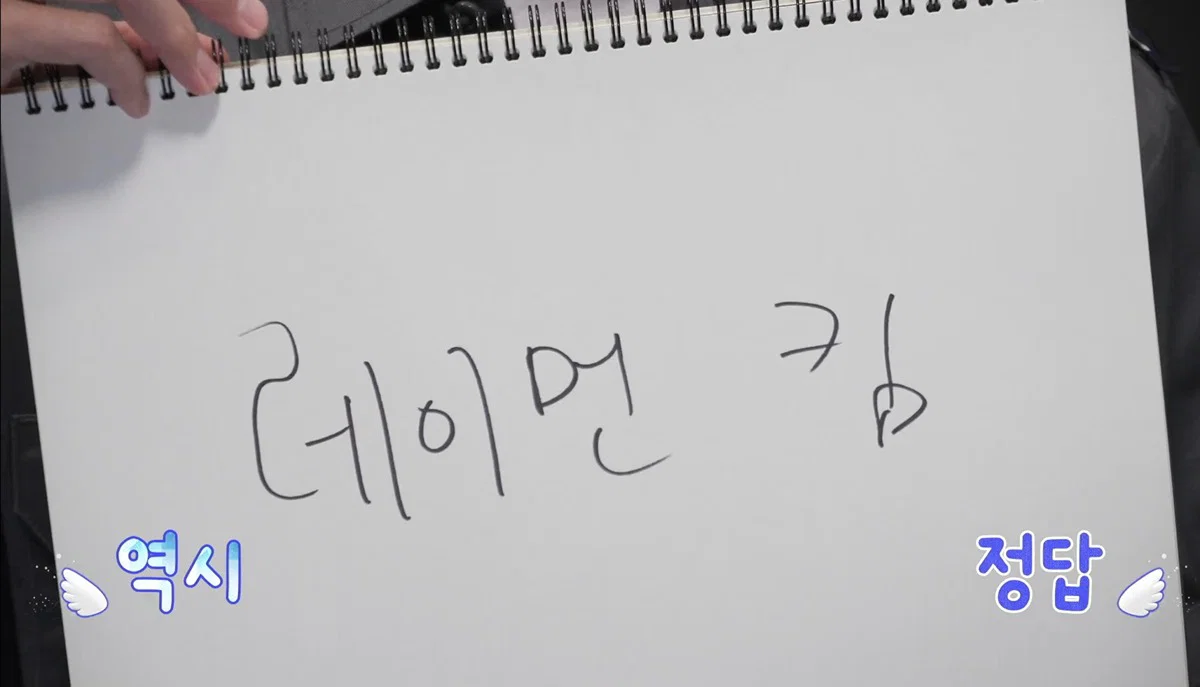 레이먼 킴
역시
정답